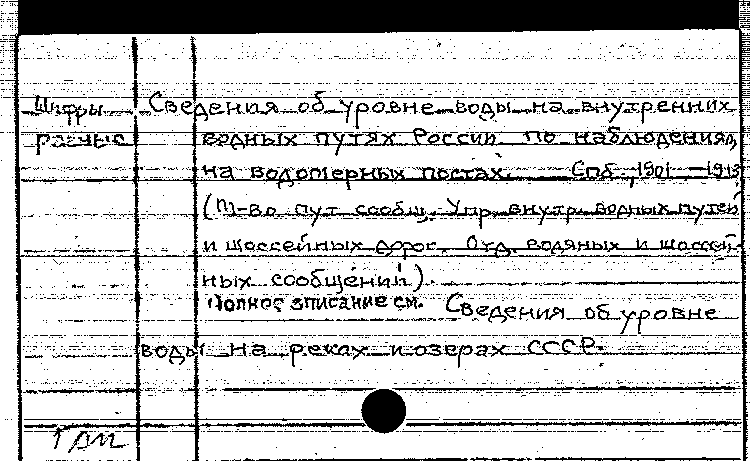 Шифры Сведения об уровне воды на внутренних
разные водных путях России по наблюдениям
на водомерных постах. Спб, 1901-1913
(М-во пут. сообщ. Упр. внутр. водных путей
и шоссейных дорог. Отд. водяных и шоссей-
ных сообщений).
Полное описание см. Сведения об уровне
воды на реках и озерах СССР.